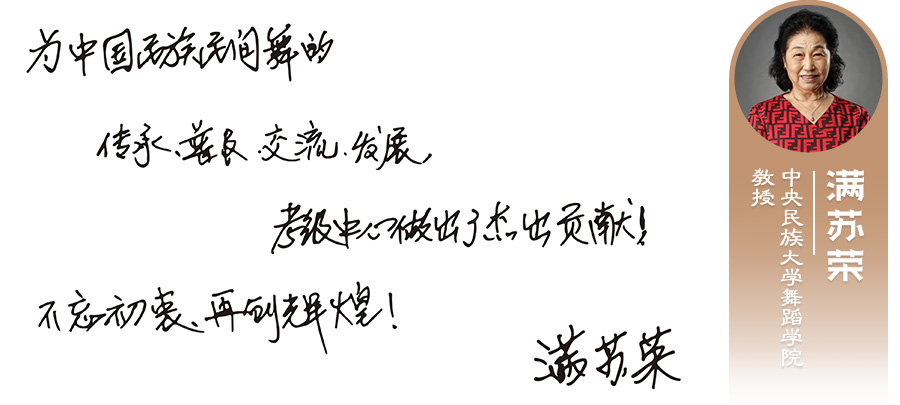 为中国民族民间舞的
传承、普及、交流、发展，
考级中心做出了杰出贡献！
不忘初衷、再创辉煌！
满苏荣
满苏荣
中央民族大学舞蹈学院
教授